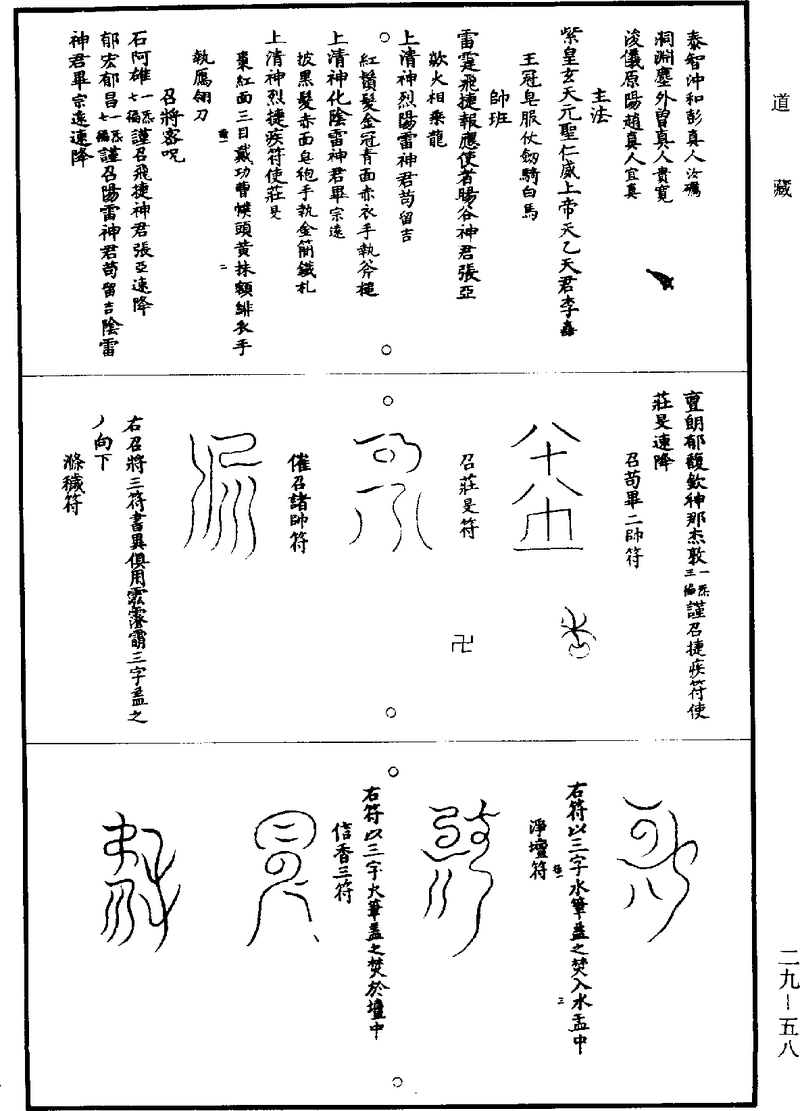 道藏
泰智沖和彭真人汝礪
洞淵塵外曾真人貴寬
浚儀原陽趙真人宜真
主法
紫皇玄天元聖仁威上帝天乙天君李
王冠皂服仗劒騎白馬
帥班
雷霆飛捷報應使者暘谷神君張亞
歘火相乘龍
上清神烈陽雷神君苟留吉
紅鬚髮金冠青面赤衣手執斧槌
上清神化陰雷神君畢宗遠
披黑髮赤面皂袍手執金簡鐵札
上清神烈捷疾符使莊旻
棗紅面三目戴功曹幞頭黃抹額緋衣手
執鴈翎刀
召將密呪
石阿雄一炁七徧謹召飛捷神君張亞速降
郁宏郁昌一炁七徧謹召陽雷神君苟留吉陰雷
神君畢宗遠速降
亶朗郁馥欽神那杰敦一炁三徧謹召捷疾符使
莊旻速降
召苟畢二帥符
召莊旻符
卍
催召諸帥符
右召將三符書畢俱用三字蓋之
丿向下
滌穢符
右符以三字水筆蓋之焚入水盂中
淨壇符
右符以三字火筆蓋之焚於壇中
信香三符
二九-五八